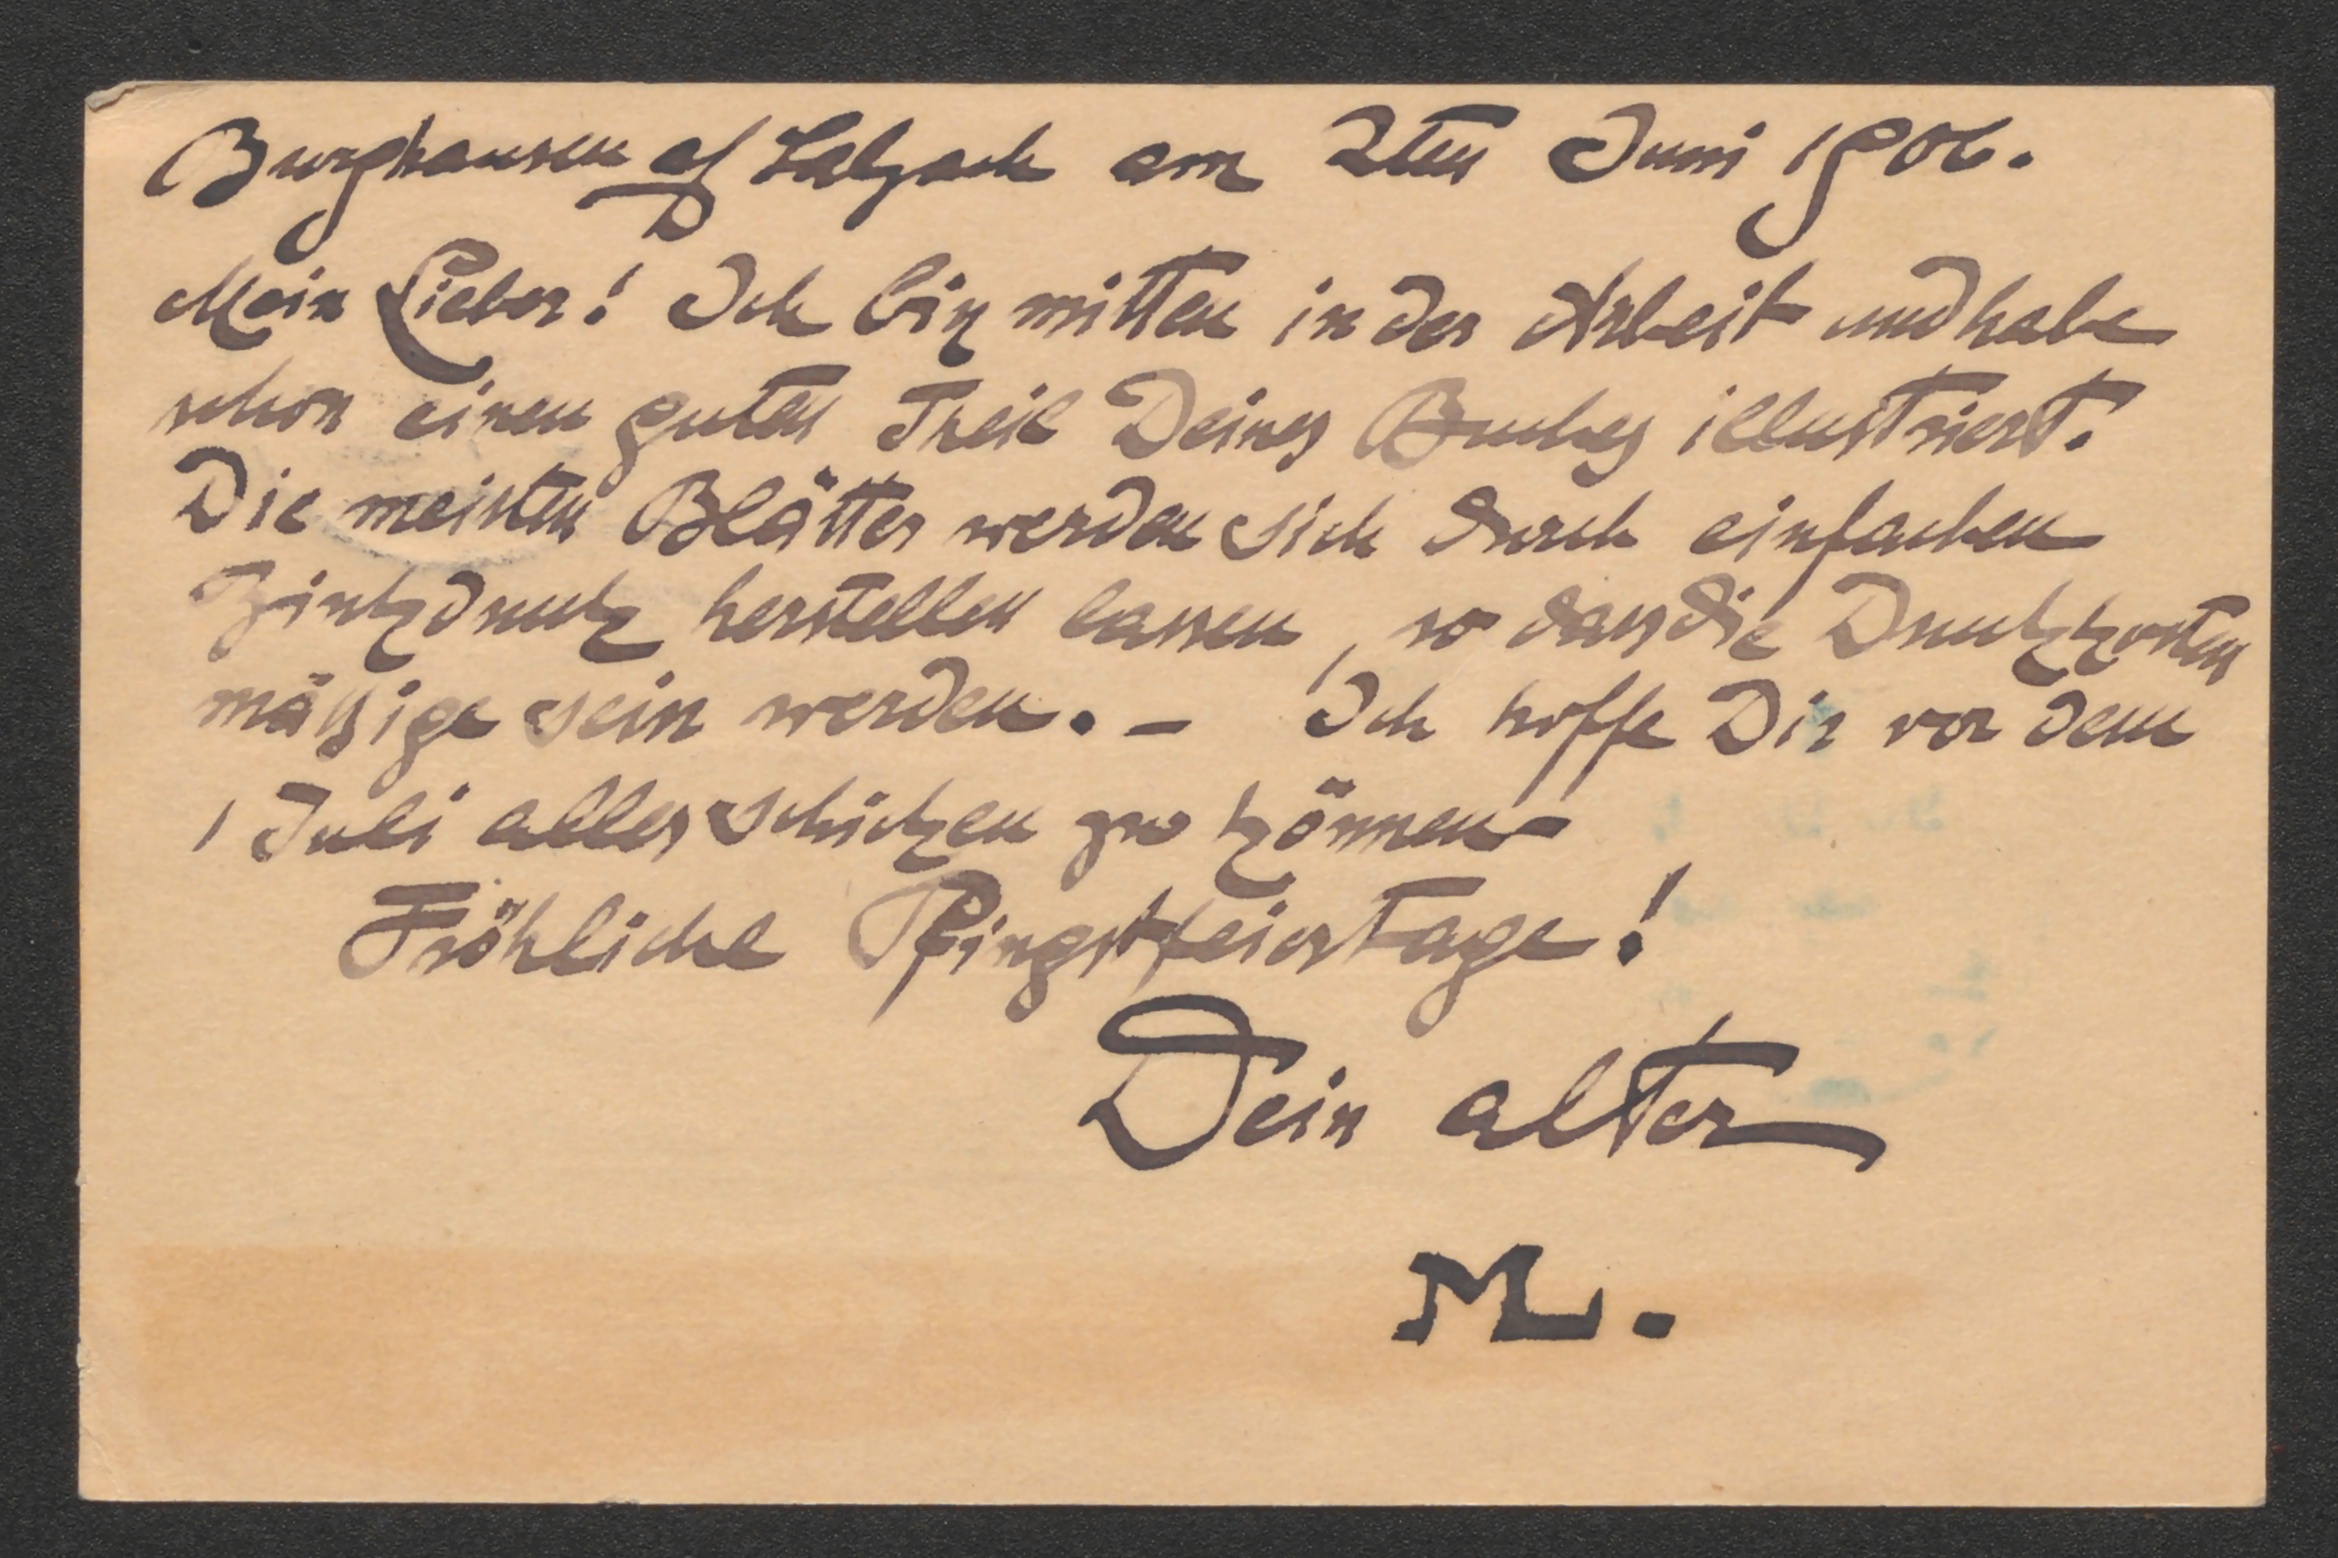 Burghausen a/ Salzach am 2ten Juni 1906.
Mein Lieber! Ich bin mitten in der Arbeit und habe
schon einen guten Theil Deines Buches illustriert.
Die meisten Blätter werden sich durch einfachen
Zinkdruck herstellen lassen, so dass die Druckkosten
mäßige sein werden. – Ich hoffe Dir vor dem
1 Juli alles schicken zu können –
Fröhliche Pfingstfeiertage!
Dein alter
M.